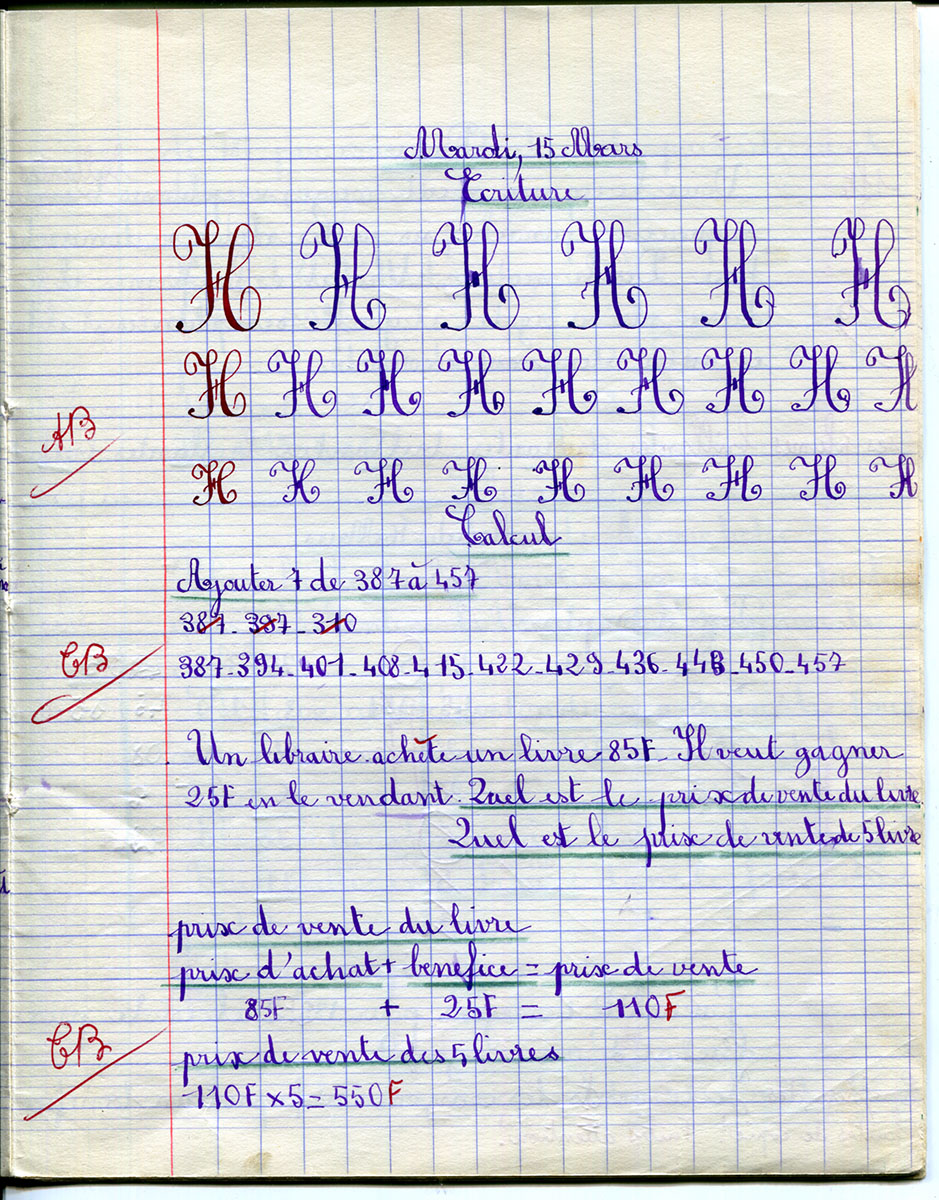 Mardi, 15 Mars
Ecriture
H H H H H H
H H H H H H H H H
AB
H H H H H H H H H
Calcul
Ajouter 7 de 387 à 457
387 - 397 - 310
TB
387 - 394 - 401 - 408 - 415 - 422 - 429 - 436 - 443 - 450 - 457
Un libraire achète un livre 85F. Il veut gagner
25F en le vendant. Quel est le prix de vente du livre.
Quel est le prix de vente de 5 livre
prix de vente du livre
prix d'achat + benefice = prix de vente
85F + 25F = 110F
TB
prix de vente des 5 livres
110F × 5 = 550F